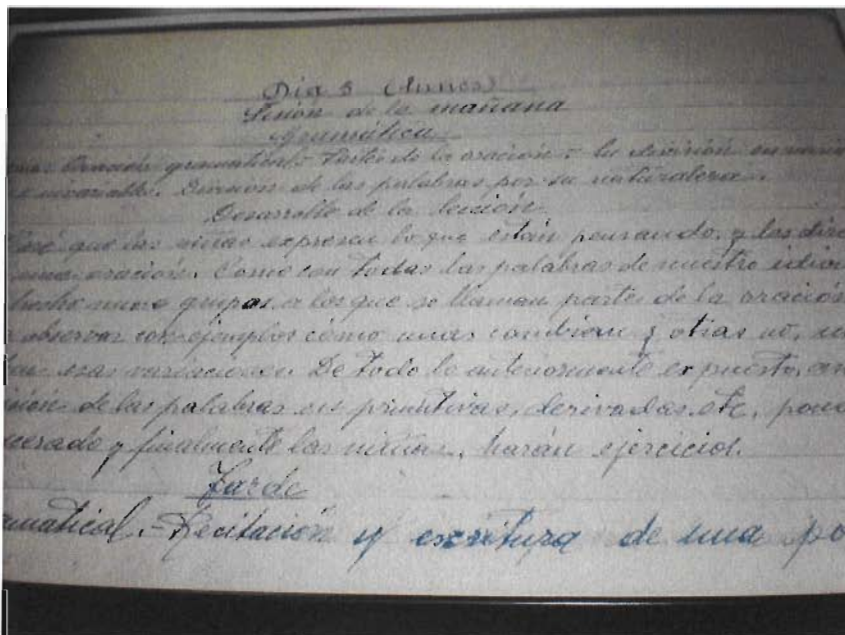 Día 3 (lunes)
Sesión de la mañana
Gramática
gramatical. Partes de la oración y la división en
invariable. División de las palabras por su naturaleza.
Desarrollo de la lección
que las niñas expresen lo que están pensando, y les diré
una oración. Como con todas las palabras de nuestro
hecho nueve grupos a los que se llaman partes de la oración
observar con ejemplos cómo unas cambian y otras no,
esas variaciones. De todo lo anteriormente expuesto,
de las palabras en primitivas, derivadas, etc,
y finalmente las niñas, harán ejercicios.
Tarde
Recitación y escritura de una po